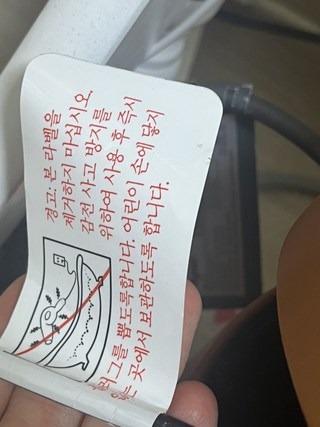 경고: 본 라벨을
제거하지 마십시오.
감전사고 방지를
위하여 사용 후 즉시
플러그를 뽑도록합니다. 어린이 손에 닿지
않는 곳에서 보관하도록 합니다.